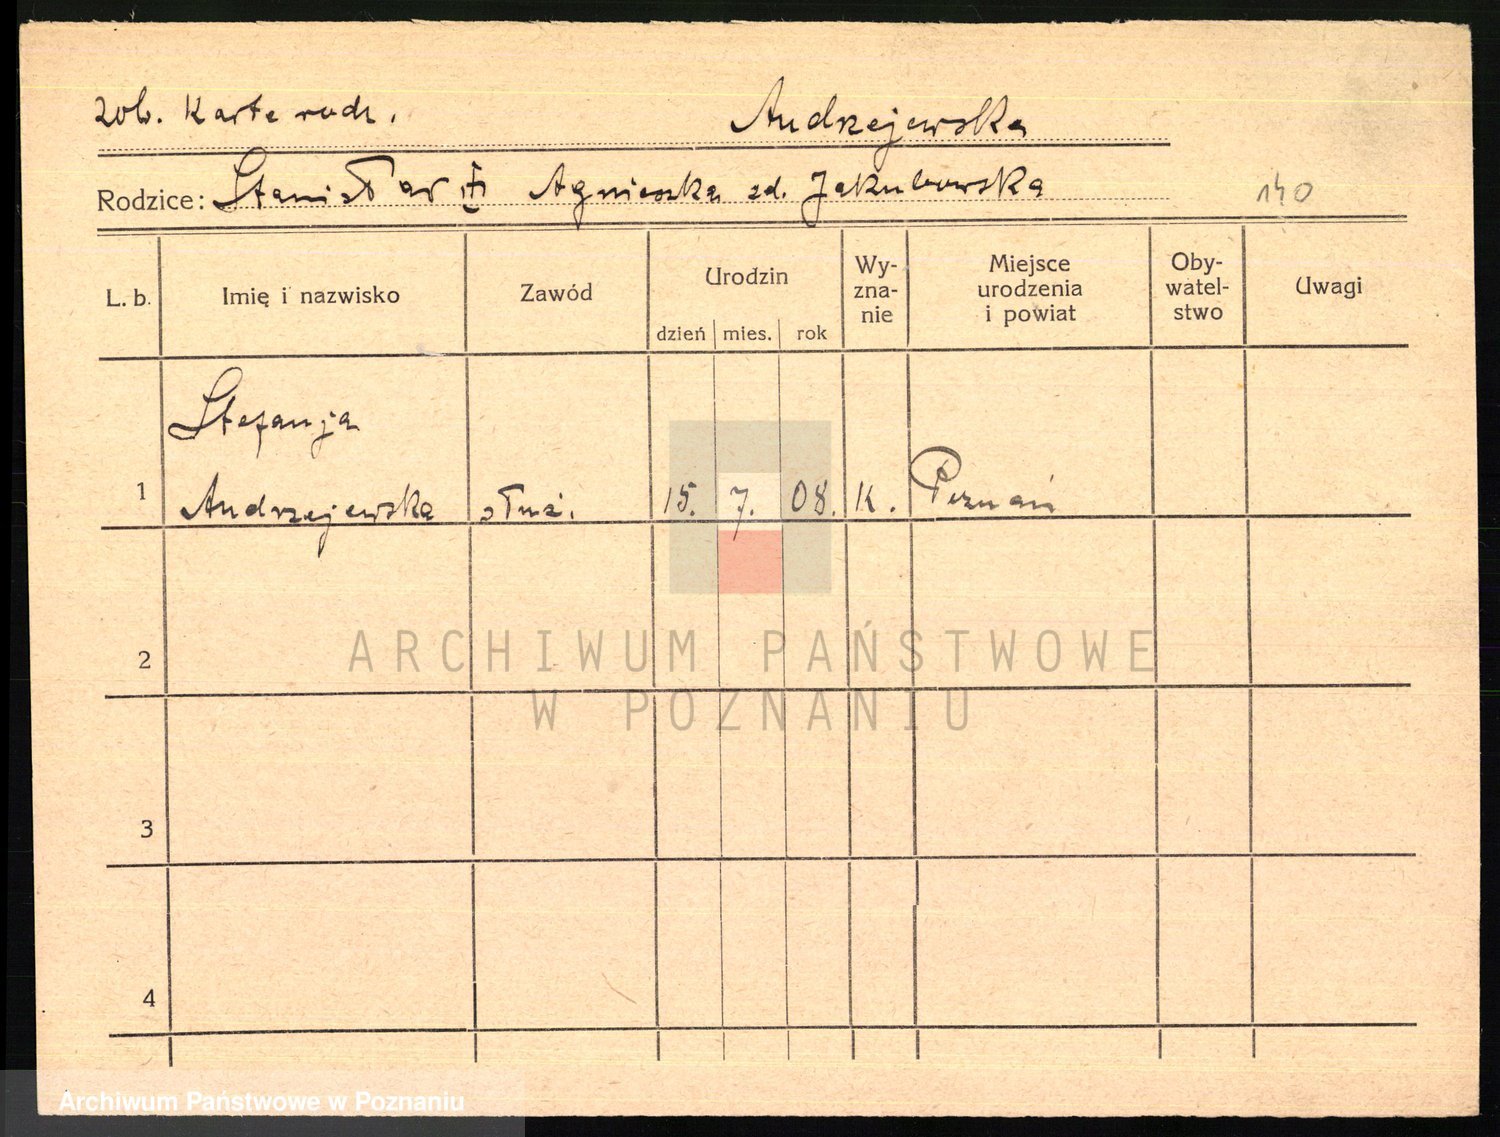 zob. Karte rodz. Andrzejewska
Rodzice: Stanisław Agnieszka zd. Jakubowska 140
L. b. Imię i nazwisko Zawód Urodzin dzień mies. rok Wy-zna-nie Miejsce urodzenia i powiat Oby-watel-stwo Uwagi
Stefanja
1 Andrzejewska służ. 15. 7. 08. K. Poznań
2
ARCHIWUM PAŃSTWOWE
W POZNANIU
3
4
Archiwum Państwowe w Poznaniu